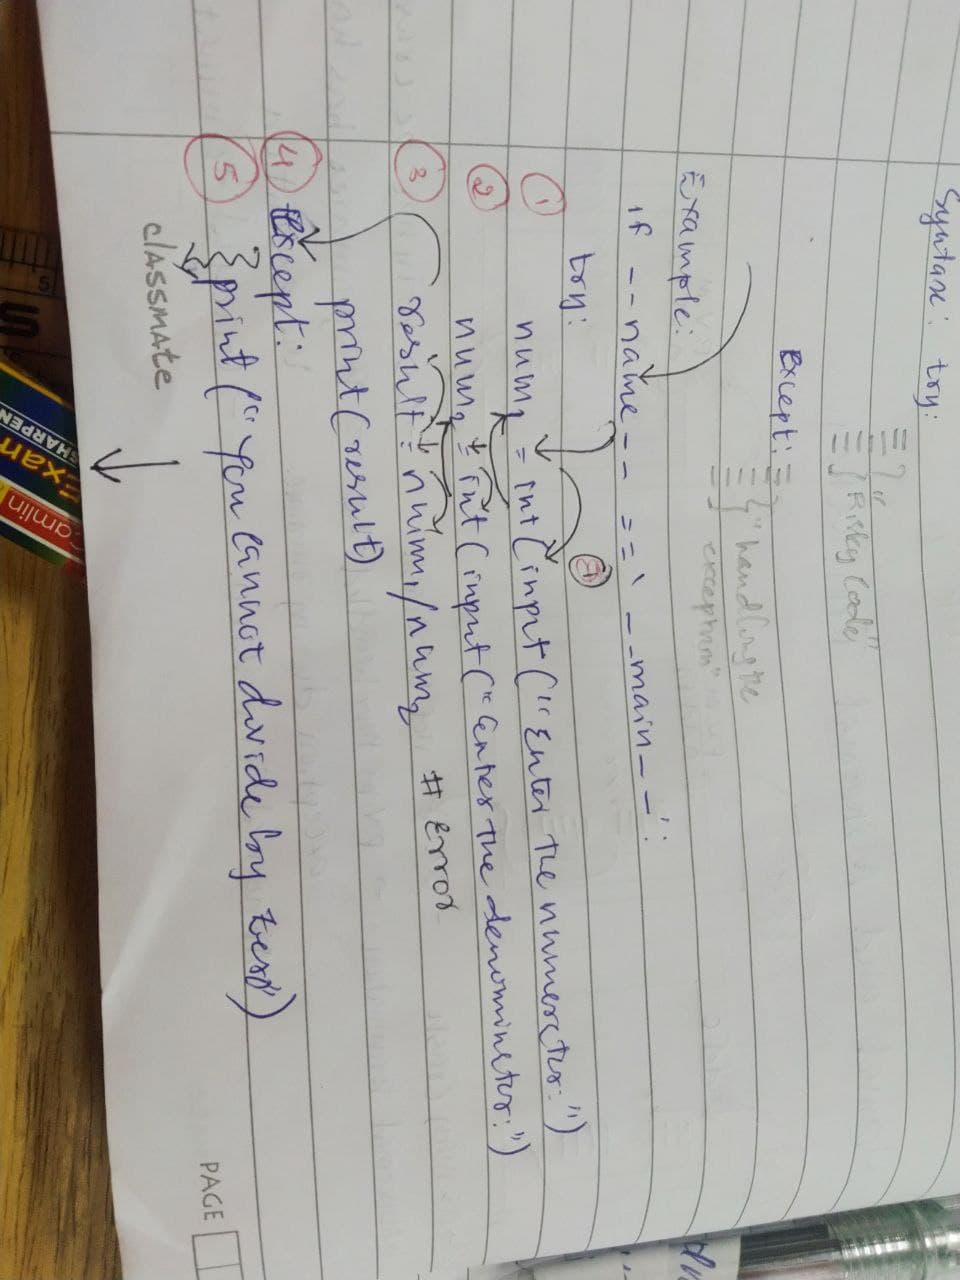 Syntax: try:
≡} "Risky Code"
Except:
≡} "handling the
exception"
Example:
if __name__ == '__main__':
try:
① num1 = int(input("Enter the numerator:")
② num2 = int(input("Enter the denominator:")
③ result = num1/num2 # Error
print(result)
④ Except:
⑤ print("you cannot divide by zero")
classmate
PAGE
Exam
SHARPEN
Camlin
5